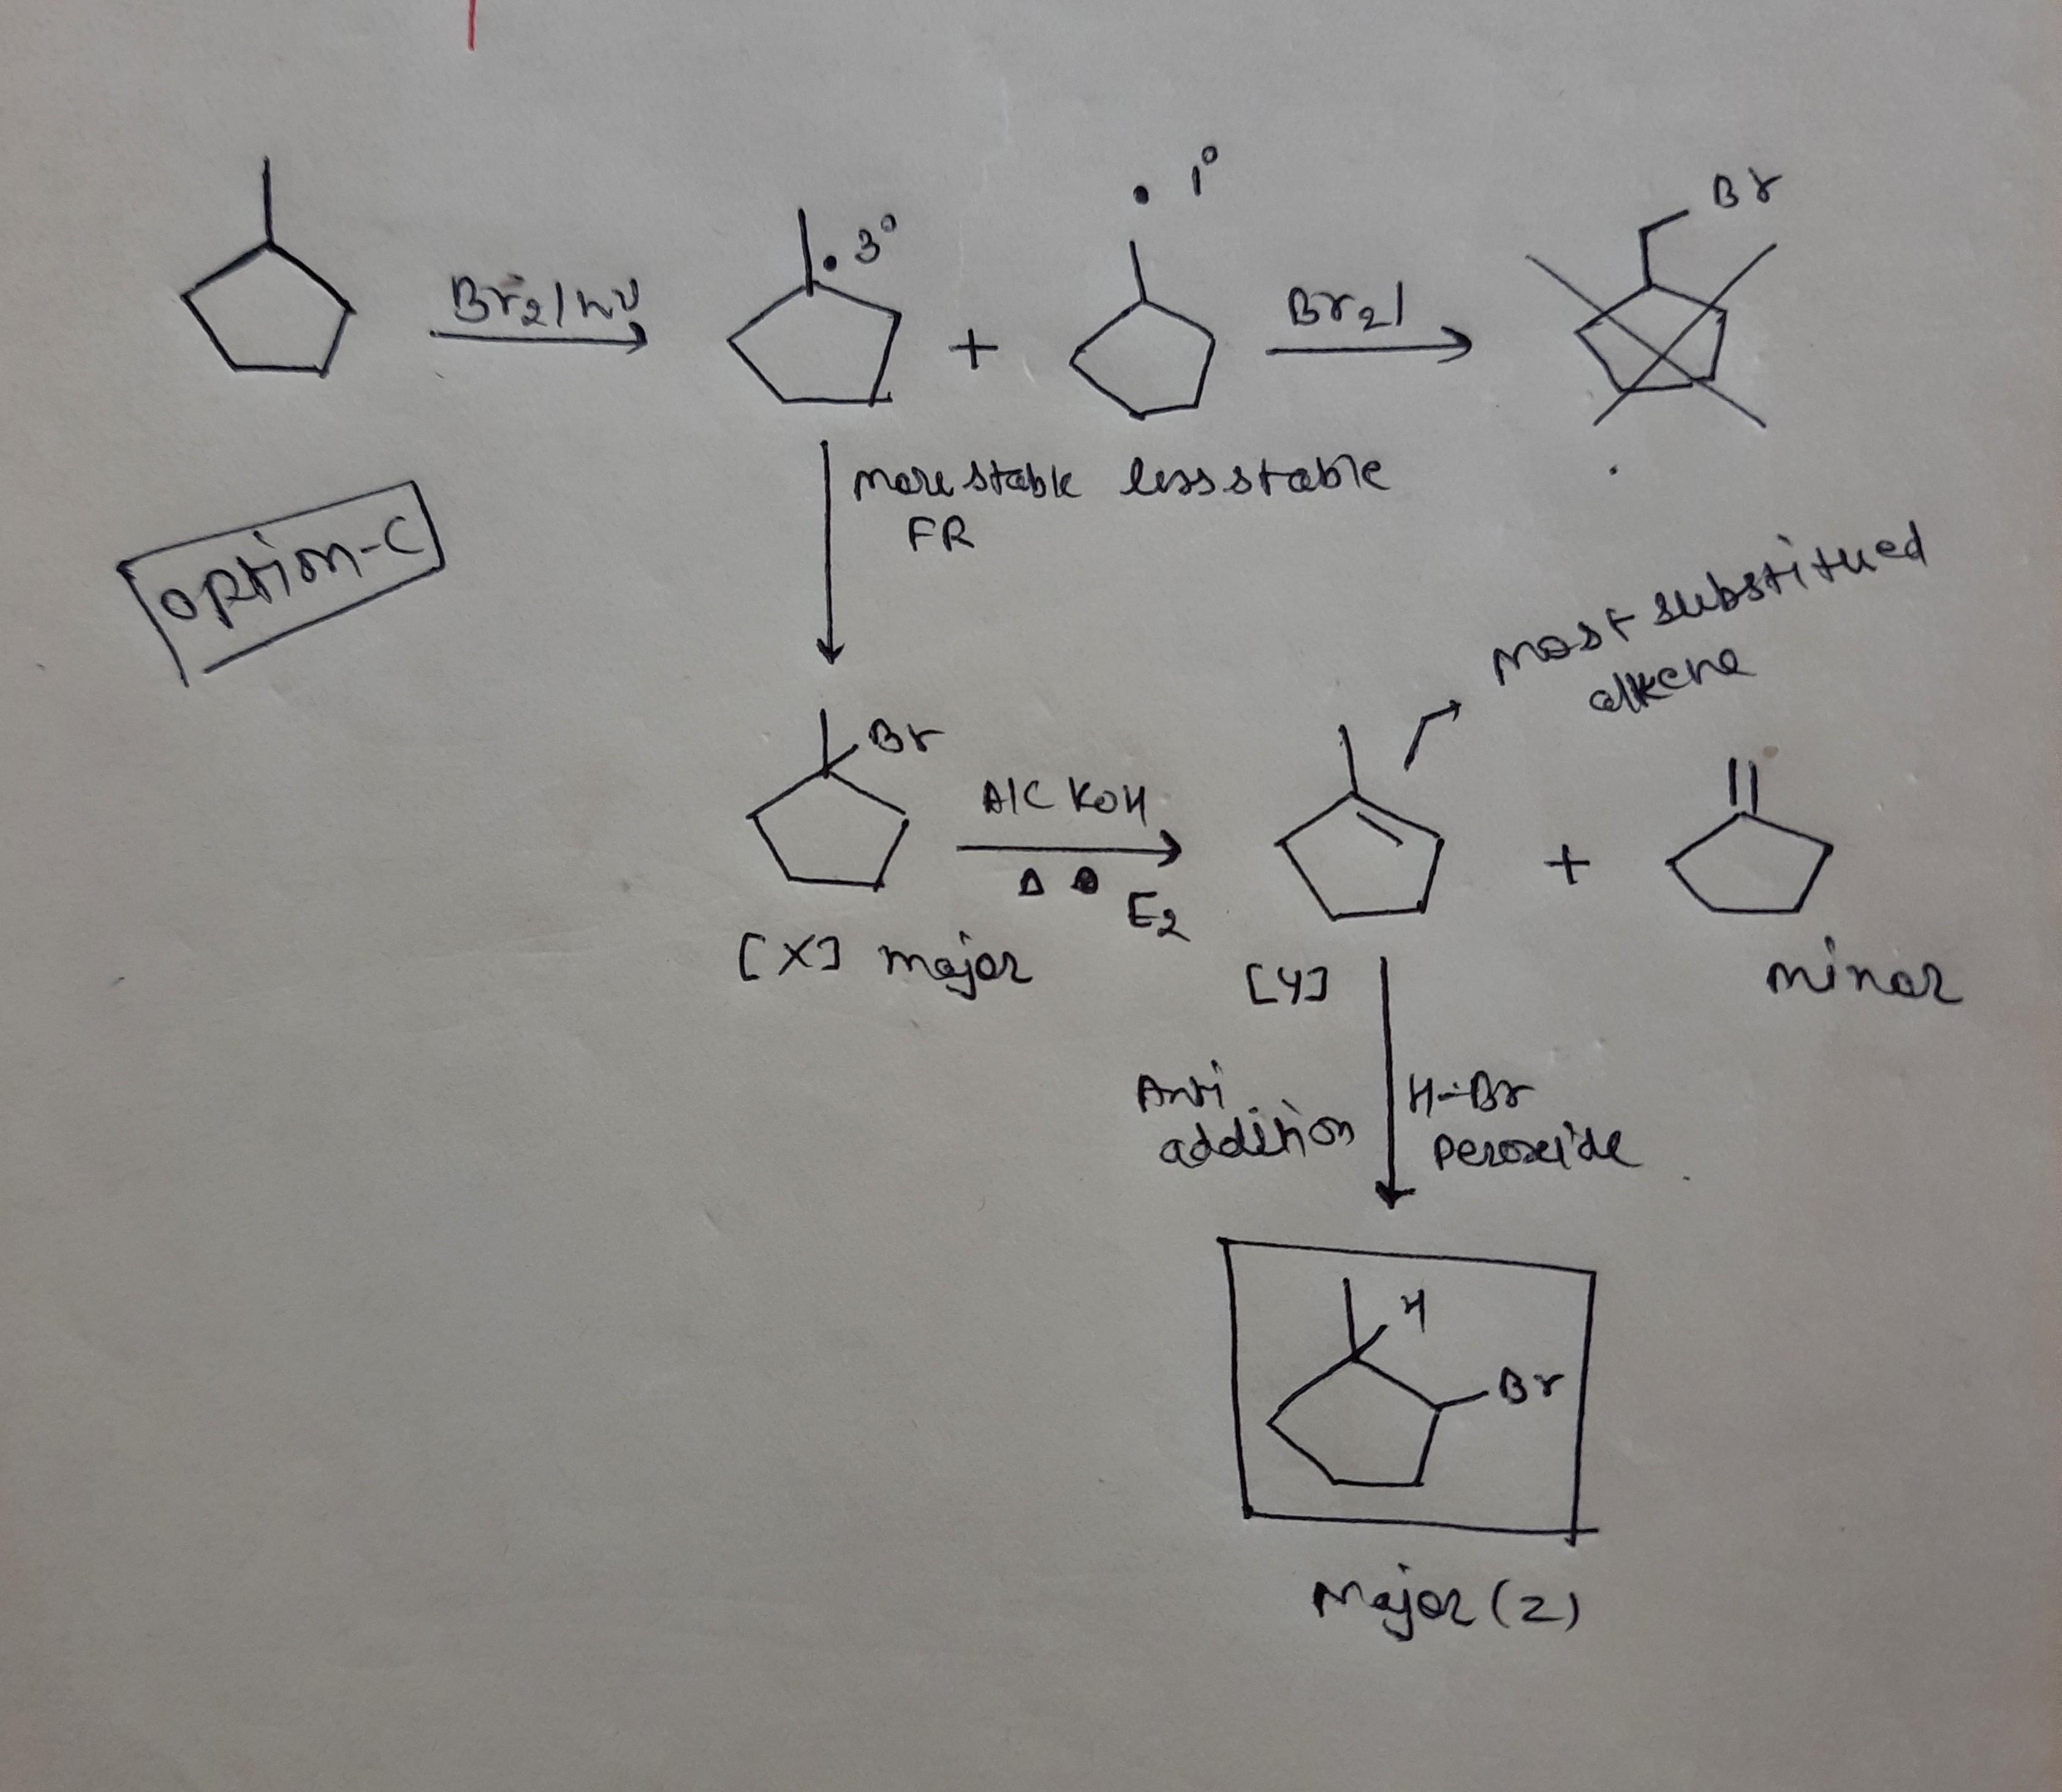 Br2/hυ
• 3°
+
• 1°
Br2/
Br
more stable less stable
FR
option-C
most substitued
alkene
Br
Alc KOH
Δ
E2
+
[X] major
[Y]
minor
Anti
addition
H-Br
peroxide
H
Br
Major (Z)